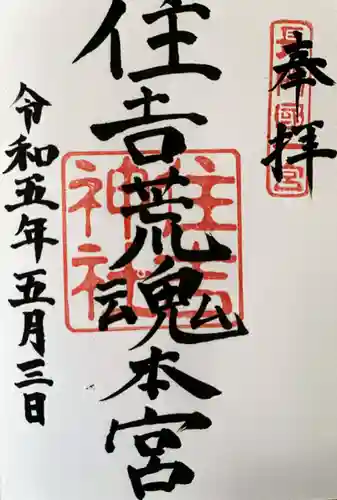 奉拝
住吉荒魂本宮
令和五年五月三日
住吉
神社